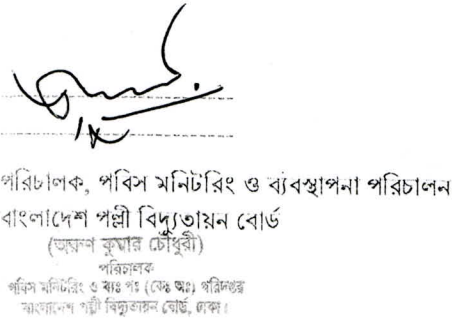 পরিচালক, পবিস মনিটরিং ও ব্যবস্থাপনা পরিচালন
বাংলাদেশ পল্লী বিদ্যুতায়ন বোর্ড
কুমার চৌধুরী)
পরিচালক
পবিস মনিটরিং ও ব্যঃ পঃ (কেঃ অঃ) পরিদপ্তর
বাংলাদেশ পল্লী বিদ্যুতায়ন বোর্ড, ঢাকা।